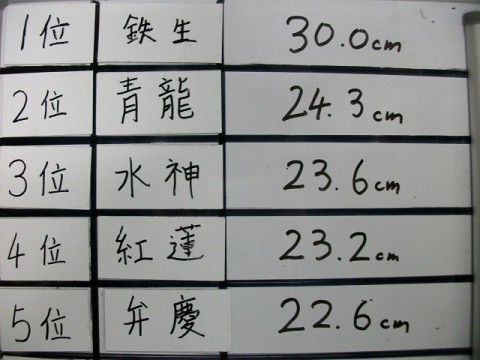 1位 鉄生 30.0cm
2位 青龍 24.3cm
3位 水神 23.6cm
4位 紅蓮 23.2cm
5位 弁慶 22.6cm